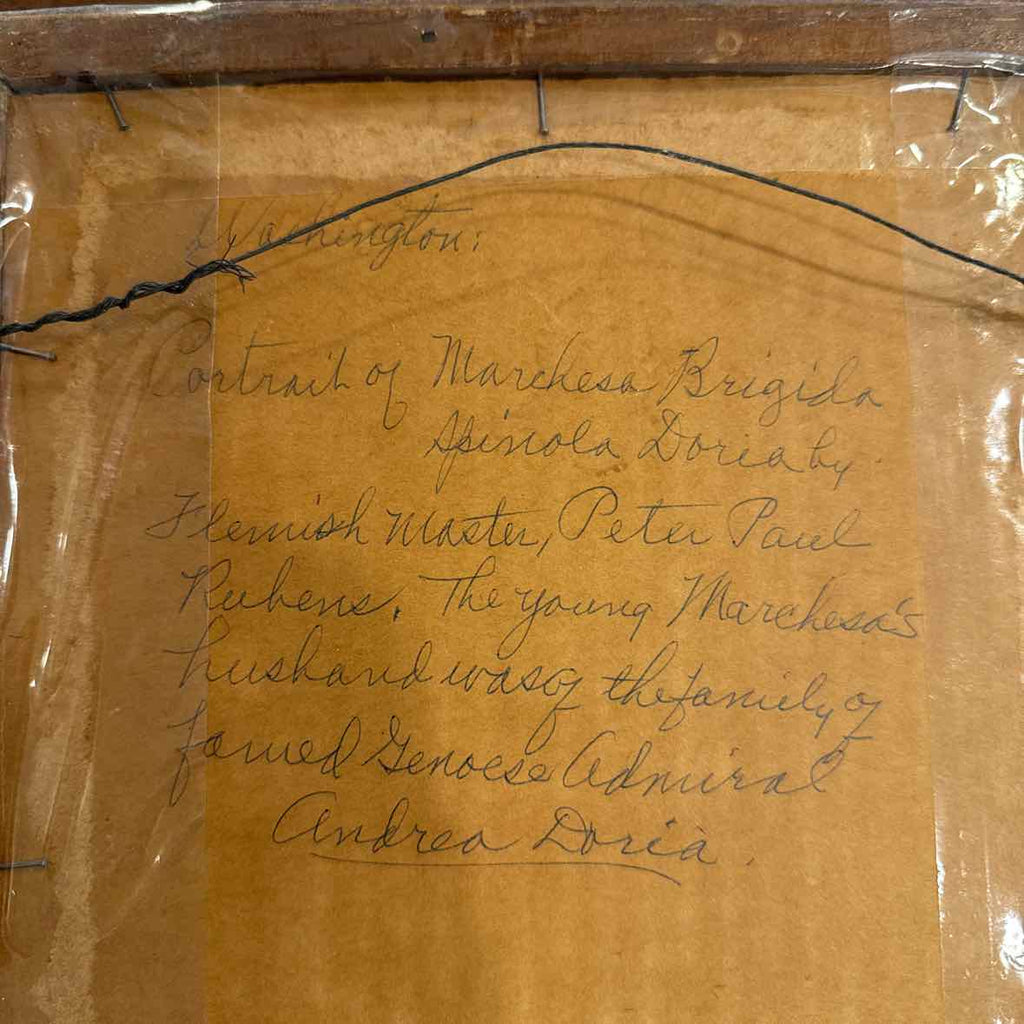 Washington:
Portrait of Marchesa Brigida
Spinola Doria by
Flemish Master, Peter Paul
Rubens. The young Marchesa's
husband was of the family of
famed Genoese Admiral
Andrea Doria.